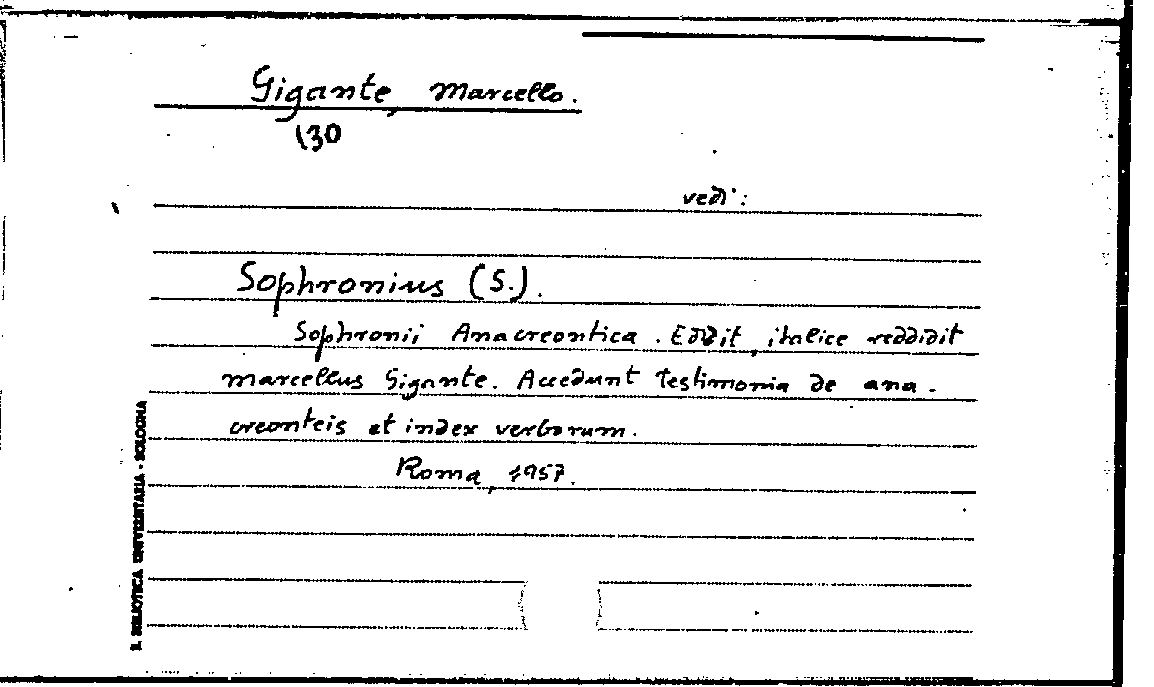 Gigante, Marcello.
130
vedi:
Sophronius (S.).
Sophronii Anacreontica. Edidit, italice reddidit
Marcellus Gigante. Accedunt testimonia de ana-
creonteis et index verborum.
Roma, 1957.
B. BIBLIOTECA UNIVERSITARIA - BOLOGNA